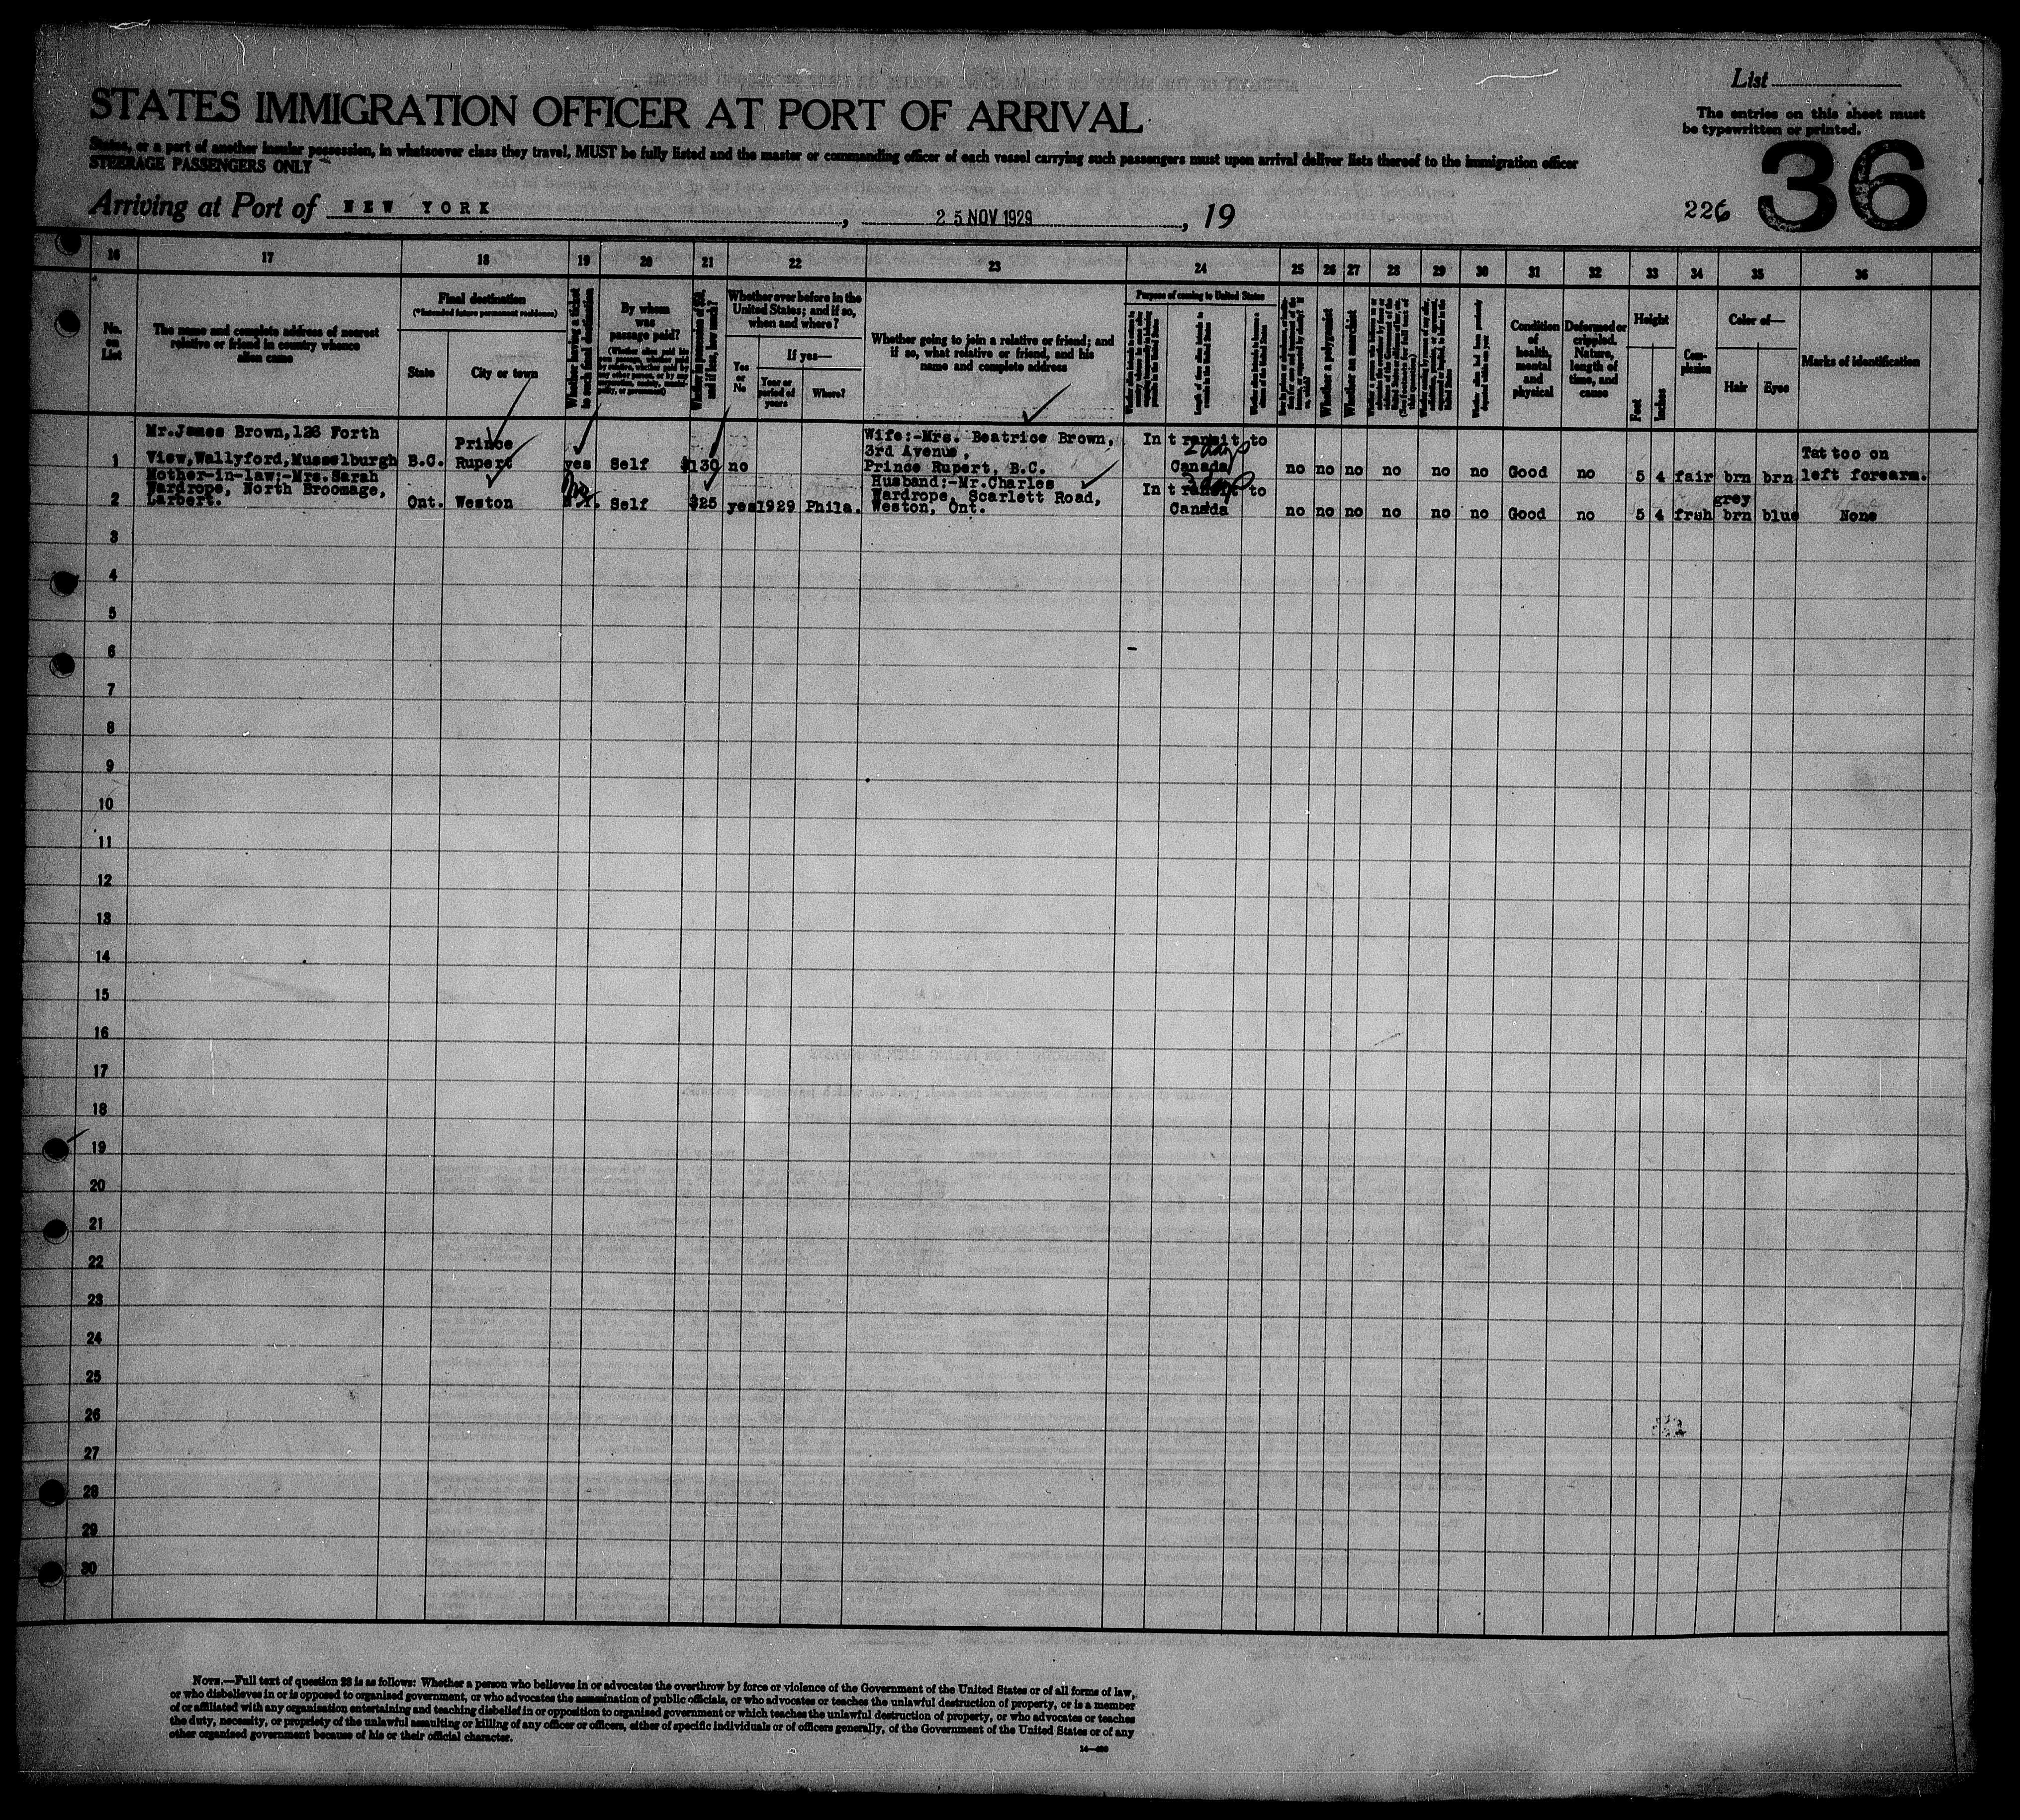 List
STATES IMMIGRATION OFFICER AT PORT OF ARRIVAL
The entries on this sheet must
be typewritten or printed.
States, or a part of another insular possession, in whatsoever class they travel, MUST be fully listed and the master or commanding officer of each vessel carrying such passengers must upon arrival deliver lists thereof to the immigration officer
STEERAGE PASSENGERS ONLY
36
226
Arriving at Port of NEW YORK, 25 NOV 1929, 19
16 17 18 19 20 21 22 23 24 25 26 27 28 29 30 31 32 33 34 35 36
No. on List
The name and complete address of nearest
relative or friend in country whence
alien came
Final destination
(*Intended future permanent residence)
State
City or town
Whether having a ticket
to such final destination
By whom
was
passage paid?
Whether in possession of $50,
and if less, how much?
Whether ever before in the
United States; and if so,
when and where?
Yes or No
If yes—
Year or
period of
years
Where?
Whether going to join a relative or friend; and
if so, what relative or friend, and his
name and complete address
Purpose of coming to United States
Whether a polygamist
Whether an anarchist
Condition
of
health,
mental
and
physical
Deformed or
crippled.
Nature,
length of
time, and
cause
Height
Feet
Inches
Com-
plexion
Color of—
Hair
Eyes
Marks of identification
1
Mr.James Brown,126 Forth
View,Wallyford,Musselburgh
B.C.
Prince
Rupert
yes
Self
$130
no
Wife:-Mrs. Beatrice Brown,
3rd Avenue,
Prince Rupert, B.C.
In transit to
2 days
Canada
no no no no no no Good no 5 4 fair brn brn
Tattoo on
left forearm.
2
Mother-in-law:-Mrs.Sarah
Wardrope, North Broomage,
Larbert.
Ont.
Weston
N.Y.
Self
$25
yes
1929
Phila.
Husband:-Mr.Charles
Wardrope, Scarlett Road,
Weston, Ont.
In transit to
Canada
no no no no no no Good no 5 4 frsh
grey
brn
blue
None
3
4
5
6
7
8
9
10
11
12
13
14
15
16
17
18
19
20
21
22
23
24
25
26
27
28
29
30
NOTE.—Full text of question 28 is as follows: Whether a person who believes in or advocates the overthrow by force or violence of the Government of the United States or of all forms of law,
or who disbelieves in or is opposed to organized government, or who advocates the assassination of public officials, or who advocates or teaches the unlawful destruction of property, or is a member
of or affiliated with any organization entertaining and teaching disbelief in or opposition to organized government or which teaches the unlawful destruction of property, or who advocates or teaches
the duty, necessity, or propriety of the unlawful assaulting or killing of any officer or officers, either of specific individuals or of officers generally, of the Government of the United States or of any
other organized government because of his or their official character.